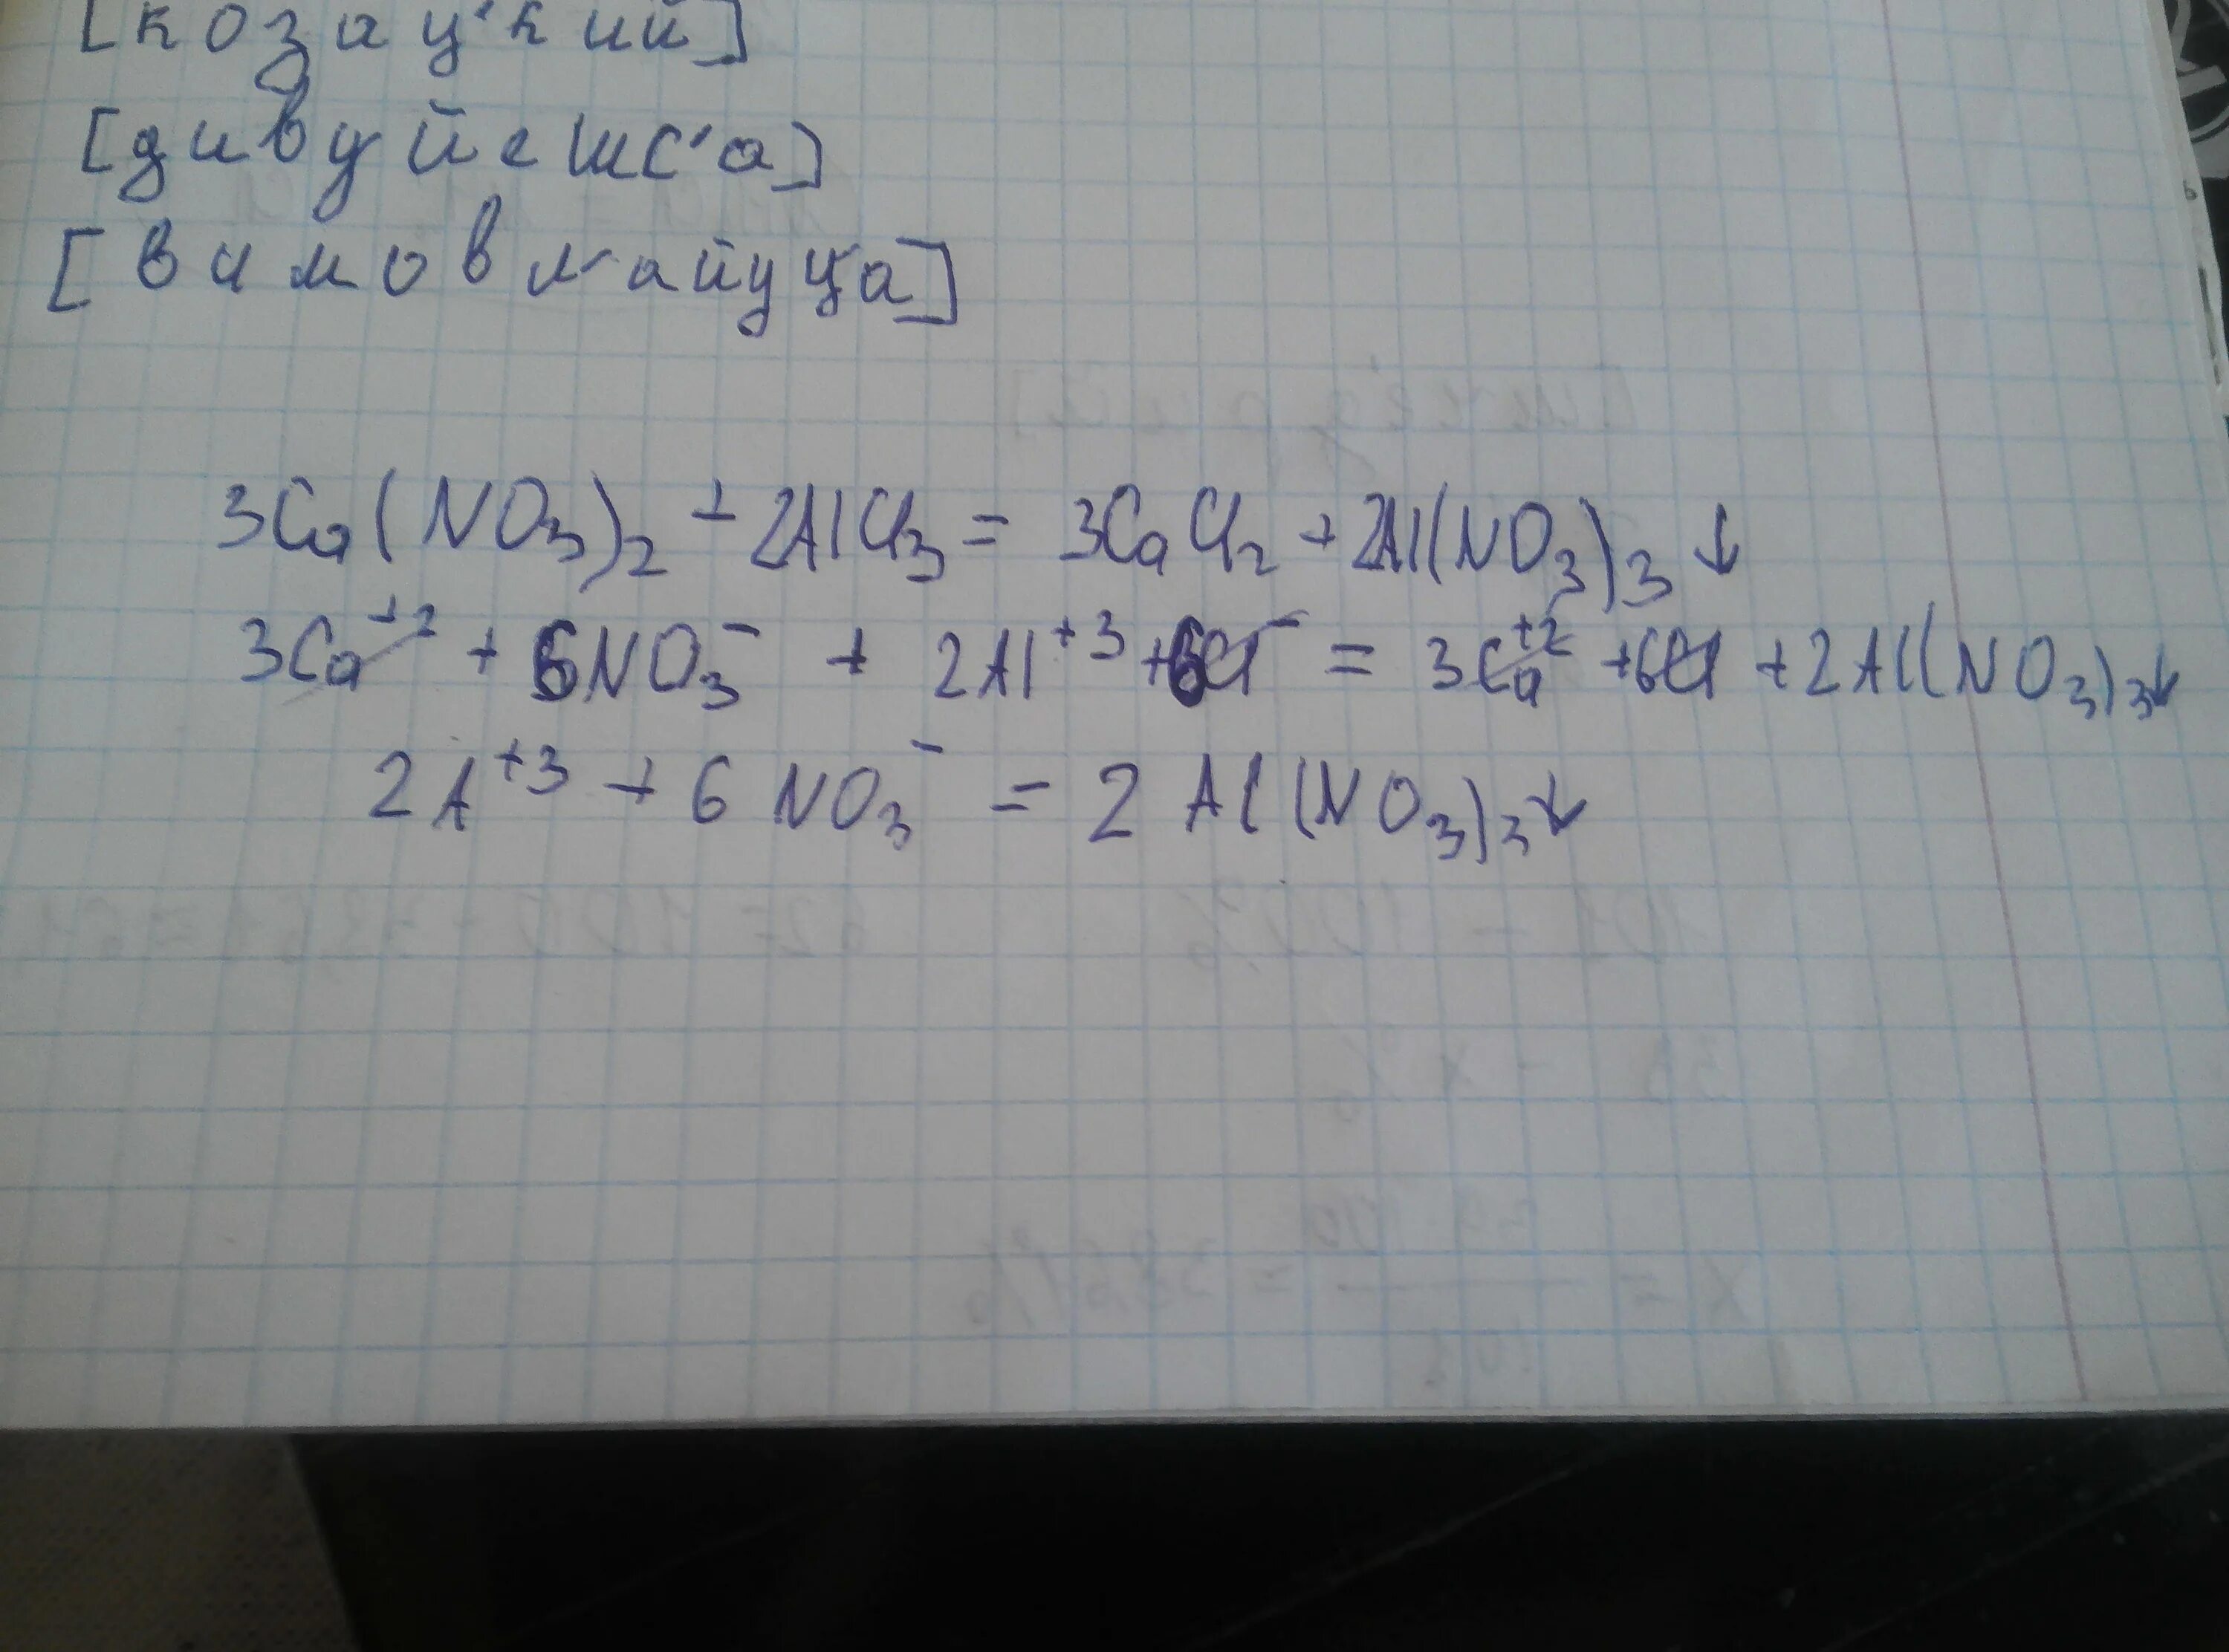 [козац'кий]
[дивуйешс'а]
[вимовл'айуца]
3Ca(NO₃)₂ + 2AlCl₃ = 3CaCl₂ + 2Al(NO₃)₃↓
3Ca⁺² + 6NO₃⁻ + 2Al⁺³ + 6Cl⁻ = 3Ca⁺² + 6Cl + 2Al(NO₃)₃↓
2A⁺³ + 6NO₃⁻ = 2Al(NO₃)₃↓